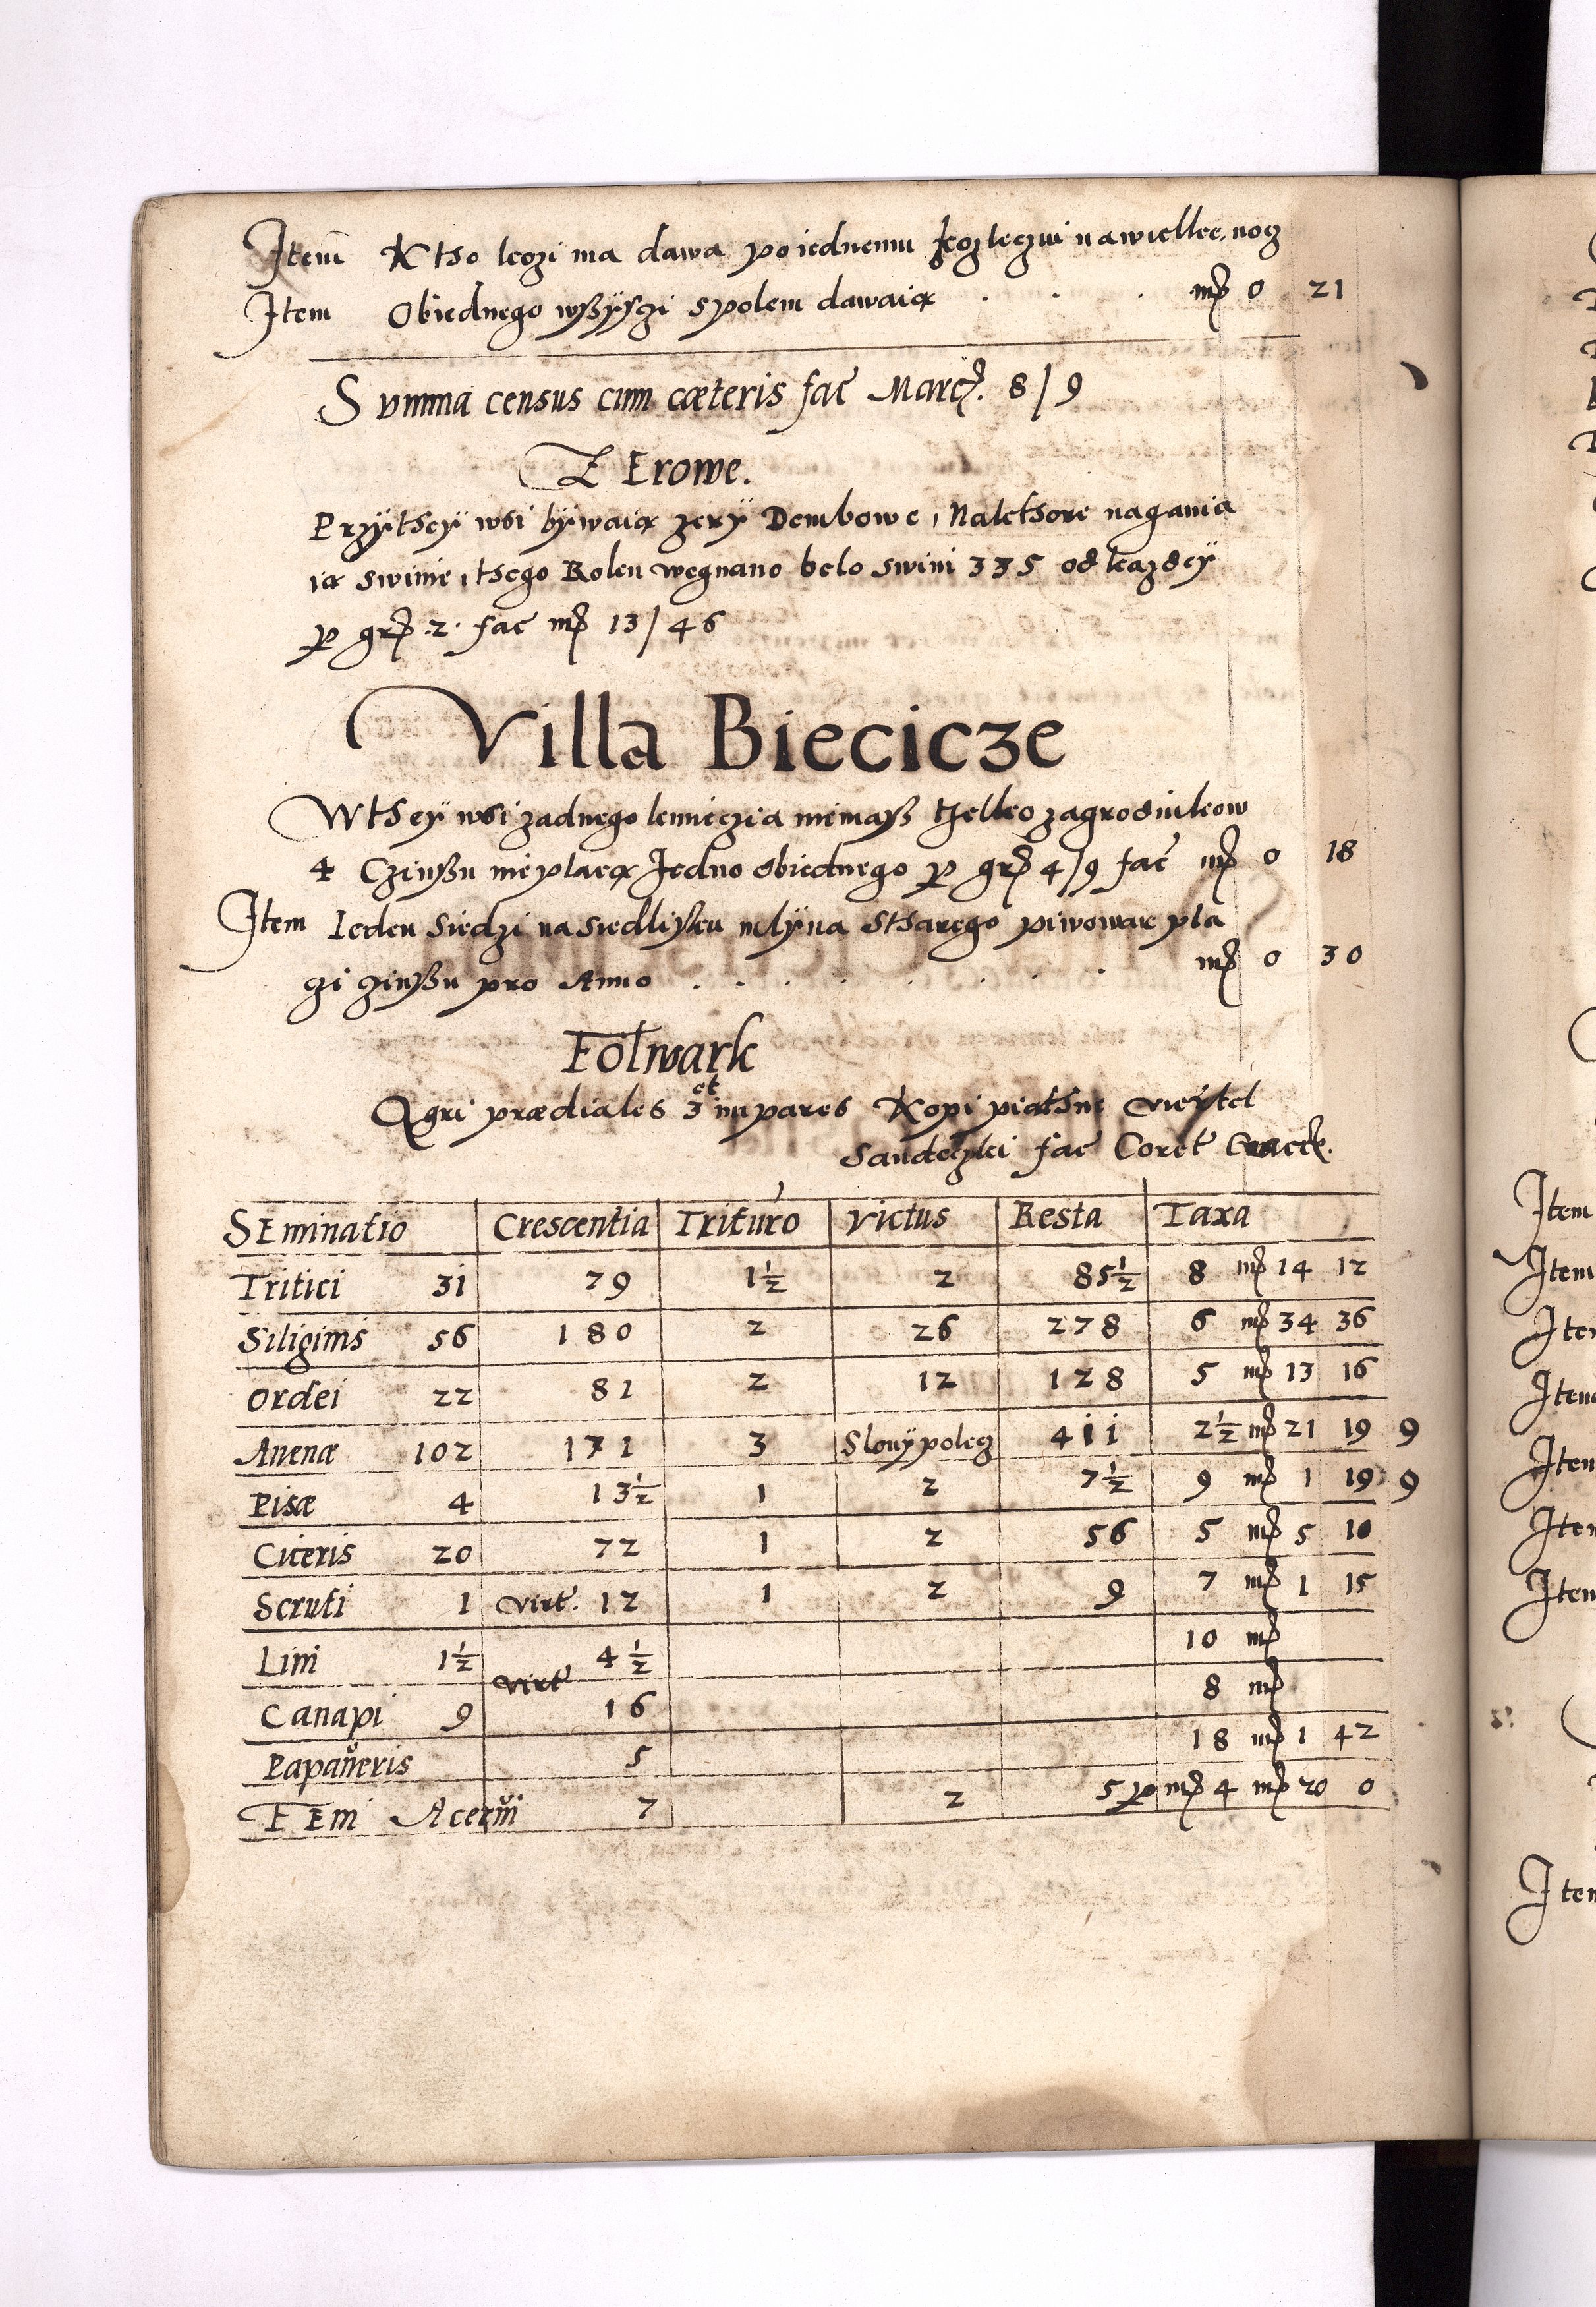 Item Ktso kozi ma dawa po iednemu kozleczui na wielkæ nocz
Item Obiednego wßÿsczi spolem dawaią . . . mp 0 21
Summa census cum cæteris fac Marcz. 8/9
Z Erowe.
Przÿtseÿ wsi bÿwaią zerÿ Dembowe, Naletsore nagania
ią swinie, tsego Roku wegnano belo swini 335 od kazdeÿ
p gr. 2. fac mp 13/46
Villa Biecicze
Wtseÿ wsi zadnego kmieczia niemaß tzelko zagrodnikow
4 Czinßu nie placą Jedno obiednego p gr 4/9 fac mp 0 18
Item Ieden siedzi na siedlisku mlÿna Stsarego piwowar pla
czi czinßu pro Anno . . . . . . . mp 0 30
Folwark
Agri prædiales 3 et impares Kopi piathne vieŕtel
Sandeczki fac Coret Crack.
SEminatio Crescentia Trituro Victus Resta Taxa
Tritici 31 79 1½ 2 85½ 8 mp 14 12
Siliginis 56 180 2 26 278 6 mp 34 36
Ordei 22 81 2 12 128 5 mp 13 16
Auenæ 102 171 3 Slouÿ polecz 411 2½ mp 21 19 9
Pisæ 4 13½ 1 2 7½ 9 mp 1 19 9
Ciceris 20 72 1 2 56 5 mp 5 10
Scruti 1 virt. 12 1 2 9 7 mp 1 15
Lini 1½ 4½ 10 mp
Canapi 9 virt 16 8 mp
Papaŭeris 5 18 mp 1 42
FEm Acerŭi 7 2 5 p mp 4 mp 20 0
Item
Item
Item
Item
Item
Item